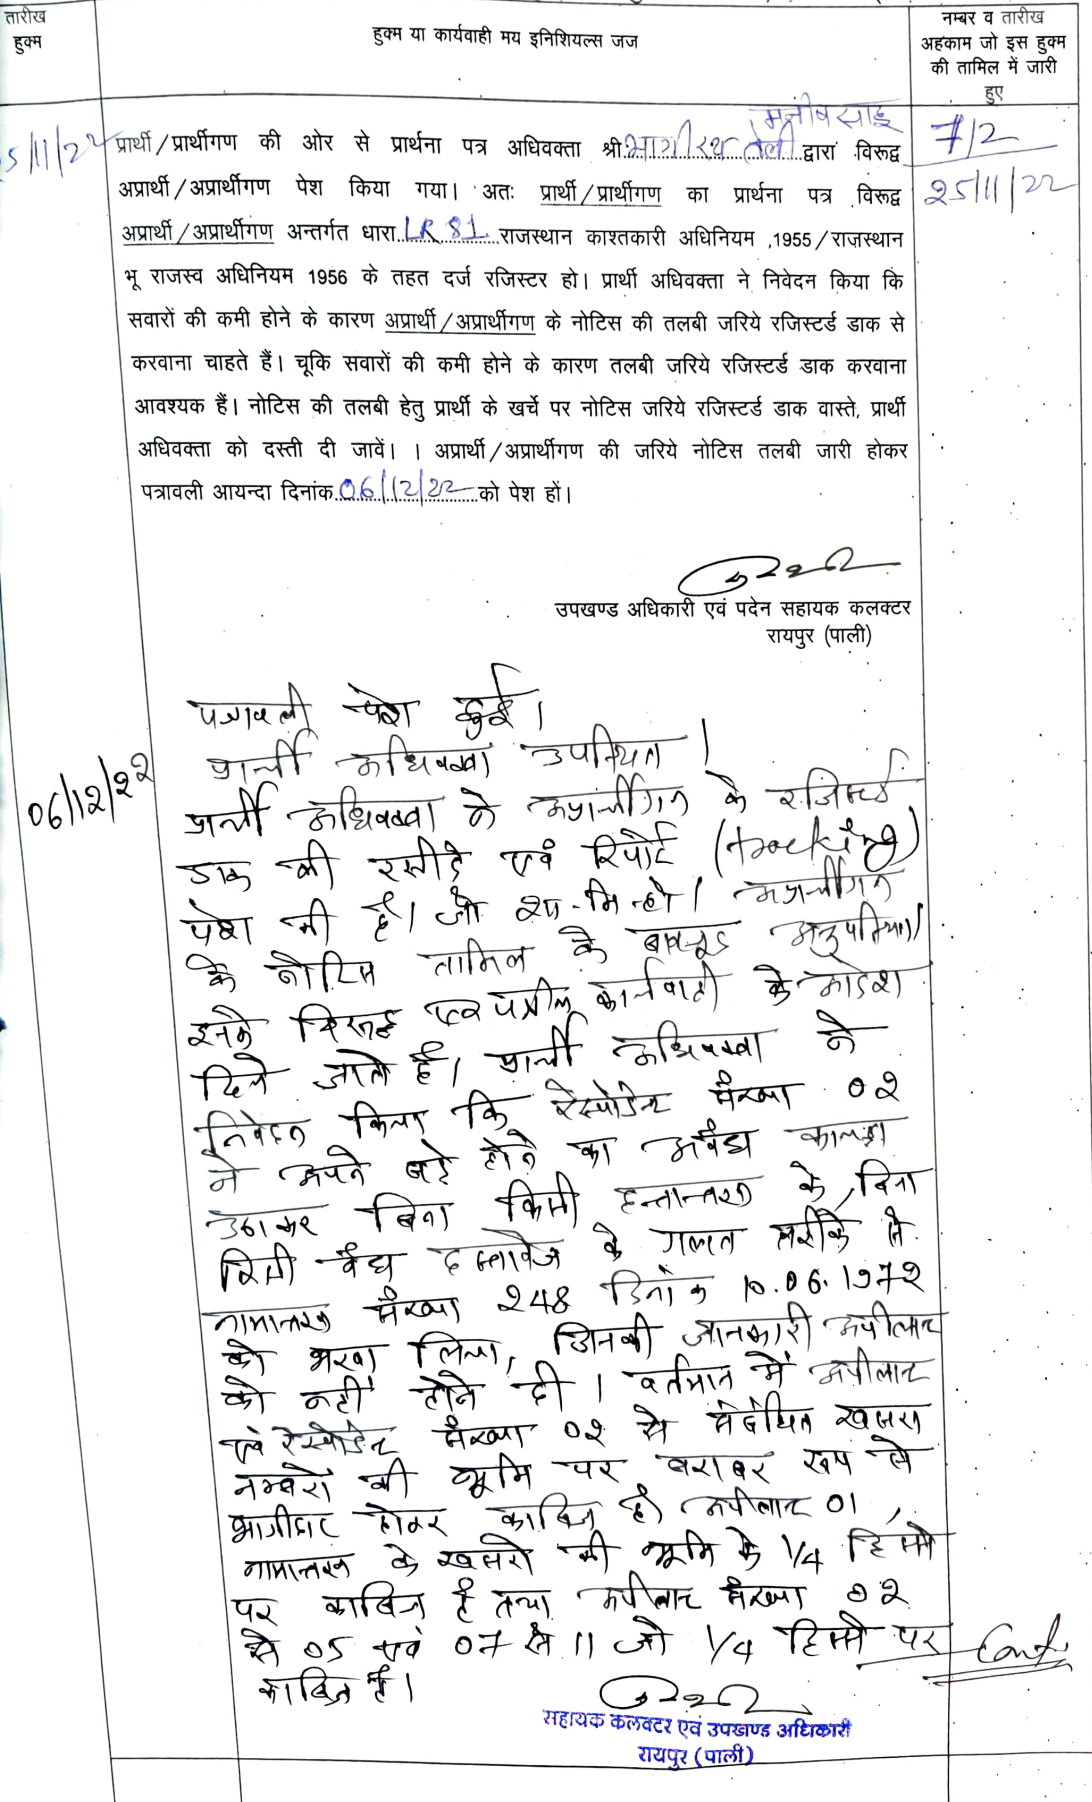 तारीख
हुक्म
हुक्म या कार्यवाही मय इनिशियल्स जज
नम्बर व तारीख
अहकाम जो इस हुक्म
की तामिल में जारी
हुए
5/11/22
7/2
25/11/22
मनीष साहू
प्रार्थी/प्रार्थीगण की ओर से प्रार्थना पत्र अधिवक्ता श्री भागीरथ तेली द्वारा विरूद्व
अप्रार्थी/अप्रार्थीगण पेश किया गया। अतः प्रार्थी/प्रार्थीगण का प्रार्थना पत्र विरूद्व
अप्रार्थी/अप्रार्थीगण अन्तर्गत धारा LR 81 राजस्थान काश्तकारी अधिनियम ,1955/राजस्थान
भू राजस्व अधिनियम 1956 के तहत दर्ज रजिस्टर हो। प्रार्थी अधिवक्ता ने निवेदन किया कि
सवारों की कमी होने के कारण अप्रार्थी/अप्रार्थीगण के नोटिस की तलबी जरिये रजिस्टर्ड डाक से
करवाना चाहते हैं। चूकि सवारों की कमी होने के कारण तलबी जरिये रजिस्टर्ड डाक करवाना
आवश्यक हैं। नोटिस की तलबी हेतु प्रार्थी के खर्चे पर नोटिस जरिये रजिस्टर्ड डाक वास्ते, प्रार्थी
अधिवक्ता को दस्ती दी जावें। । अप्रार्थी/अप्रार्थीगण की जरिये नोटिस तलबी जारी होकर
पत्रावली आयन्दा दिनांक 06/12/22 को पेश हों।
उपखण्ड अधिकारी एवं पदेन सहायक कलक्टर
रायपुर (पाली)
06/12/22
पत्रावली पेश हुई।
प्रार्थी अधिवक्ता उपस्थित।
प्रार्थी अधिवक्ता ने अप्रार्थीगण के रजिस्टर्ड
डाक की रसीदे एवं रिपोर्ट (tracking)
पेश की है। जो शा-मि-हो। अप्रार्थीगण
के नोटिस तामिल के बावजूद अनुपस्थित।
इनके विरूद्ध एकपक्षीय कार्यवाही के आदेश
दिये जाते है। प्रार्थी अधिवक्ता ने
निवेदन किया कि रेस्पोडेन्ट संख्या 02
ने अपने बडे होने का अवैध फायदा
उठाकर बिना किसी हस्तान्तरण के, बिना
किसी वैध दस्तावेज के गलत तरीके से
नामान्तरण संख्या 248 दिनांक 10.06.1972
को भरवा लिया, जिनकी जानकारी अपीलान्ट
को नहीं होने दी। वर्तमान में अपीलान्ट
एवं रेस्पोडेन्ट संख्या 02 से संबंधित खसरा
नम्बरों की भूमि पर बराबर रूप से
भागीदार होकर काबिज है। अपीलान्ट 01,
नामान्तरण के खसरो की भूमि के 1/4 हिस्से
पर काबिज है तथा अपीलान्ट संख्या 02
से 05 एवं 07 से 11 जो 1/4 हिस्से पर
काबिज है।
Cont.
सहायक कलक्टर एवं उपखण्ड अधिकारी
रायपुर (पाली)